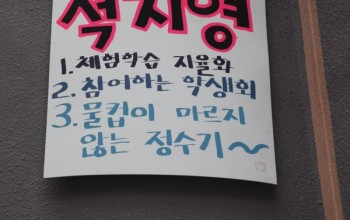 석지영
1. 체험학습 자율화
2. 참여하는 학생회
3. 물컵이 마르지
않는 정수기~